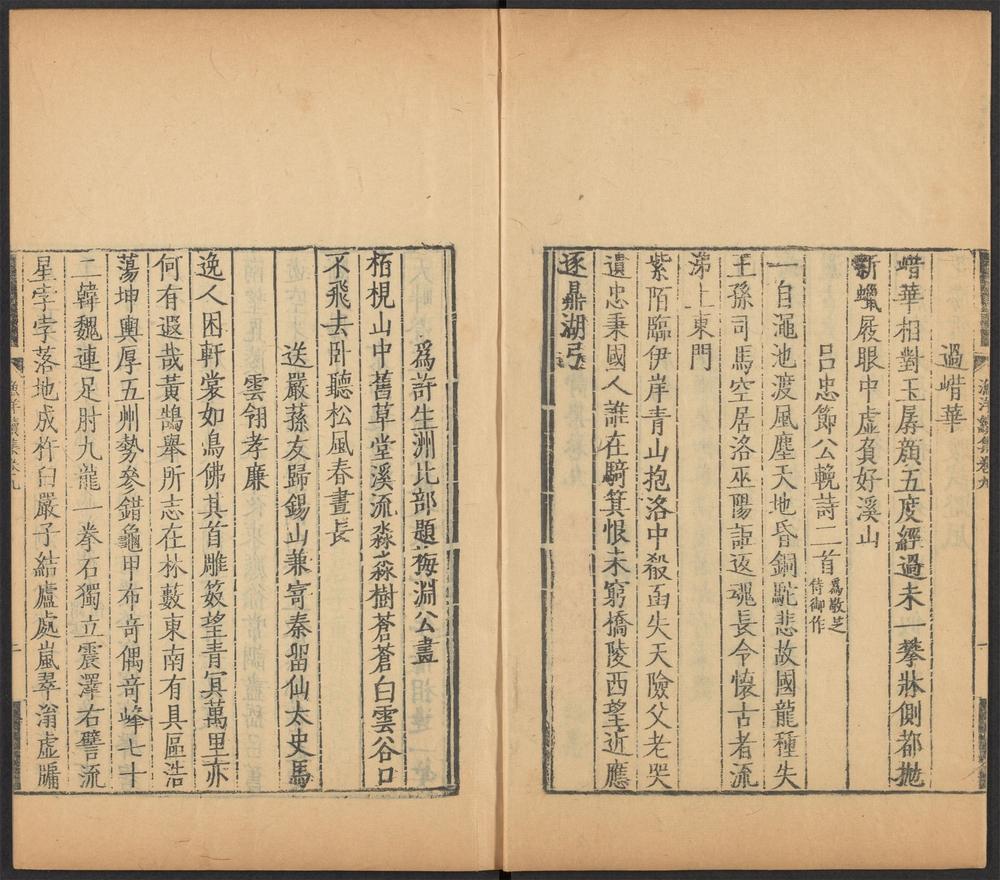 漁洋續集卷九
一
過㟙華
㟙華相對玉孱顔五度經過未一攀牀側都拋
新蠟屐眼中虛負好溪山
呂忠節公輓詩二首為敬芝侍御作
一自澠池渡風塵天地昏銅駝悲故國龍種失
王孫司馬空居洛巫陽詎返魂長令懷古者流
涕上東門
紫陌臨伊岸青山抱洛中殽函失天險父老哭
遺忠秉國人誰在騎箕恨未窮橋陵西望近應
逐鼎湖弓
為許生洲比部題梅淵公畫
栢梘山中舊草堂溪流淼淼樹蒼蒼白雲谷口
不飛去卧聽松風春晝長
送嚴蓀友歸錫山兼寄秦留仙太史馬
雲翎孝廉
逸人困軒裳如鳥佛其首雕笯望青冥萬里亦
何有遐哉黃鵠舉所志在林藪東南有具區浩
蕩坤輿厚五州勢參錯龜甲布奇偶奇峰七十
二韓魏連足肘九龍一拳石獨立震澤右譬流
星孛孛落地成杵臼嚴子結廬處嵐翠滃虛牖
漁洋續集卷九
二